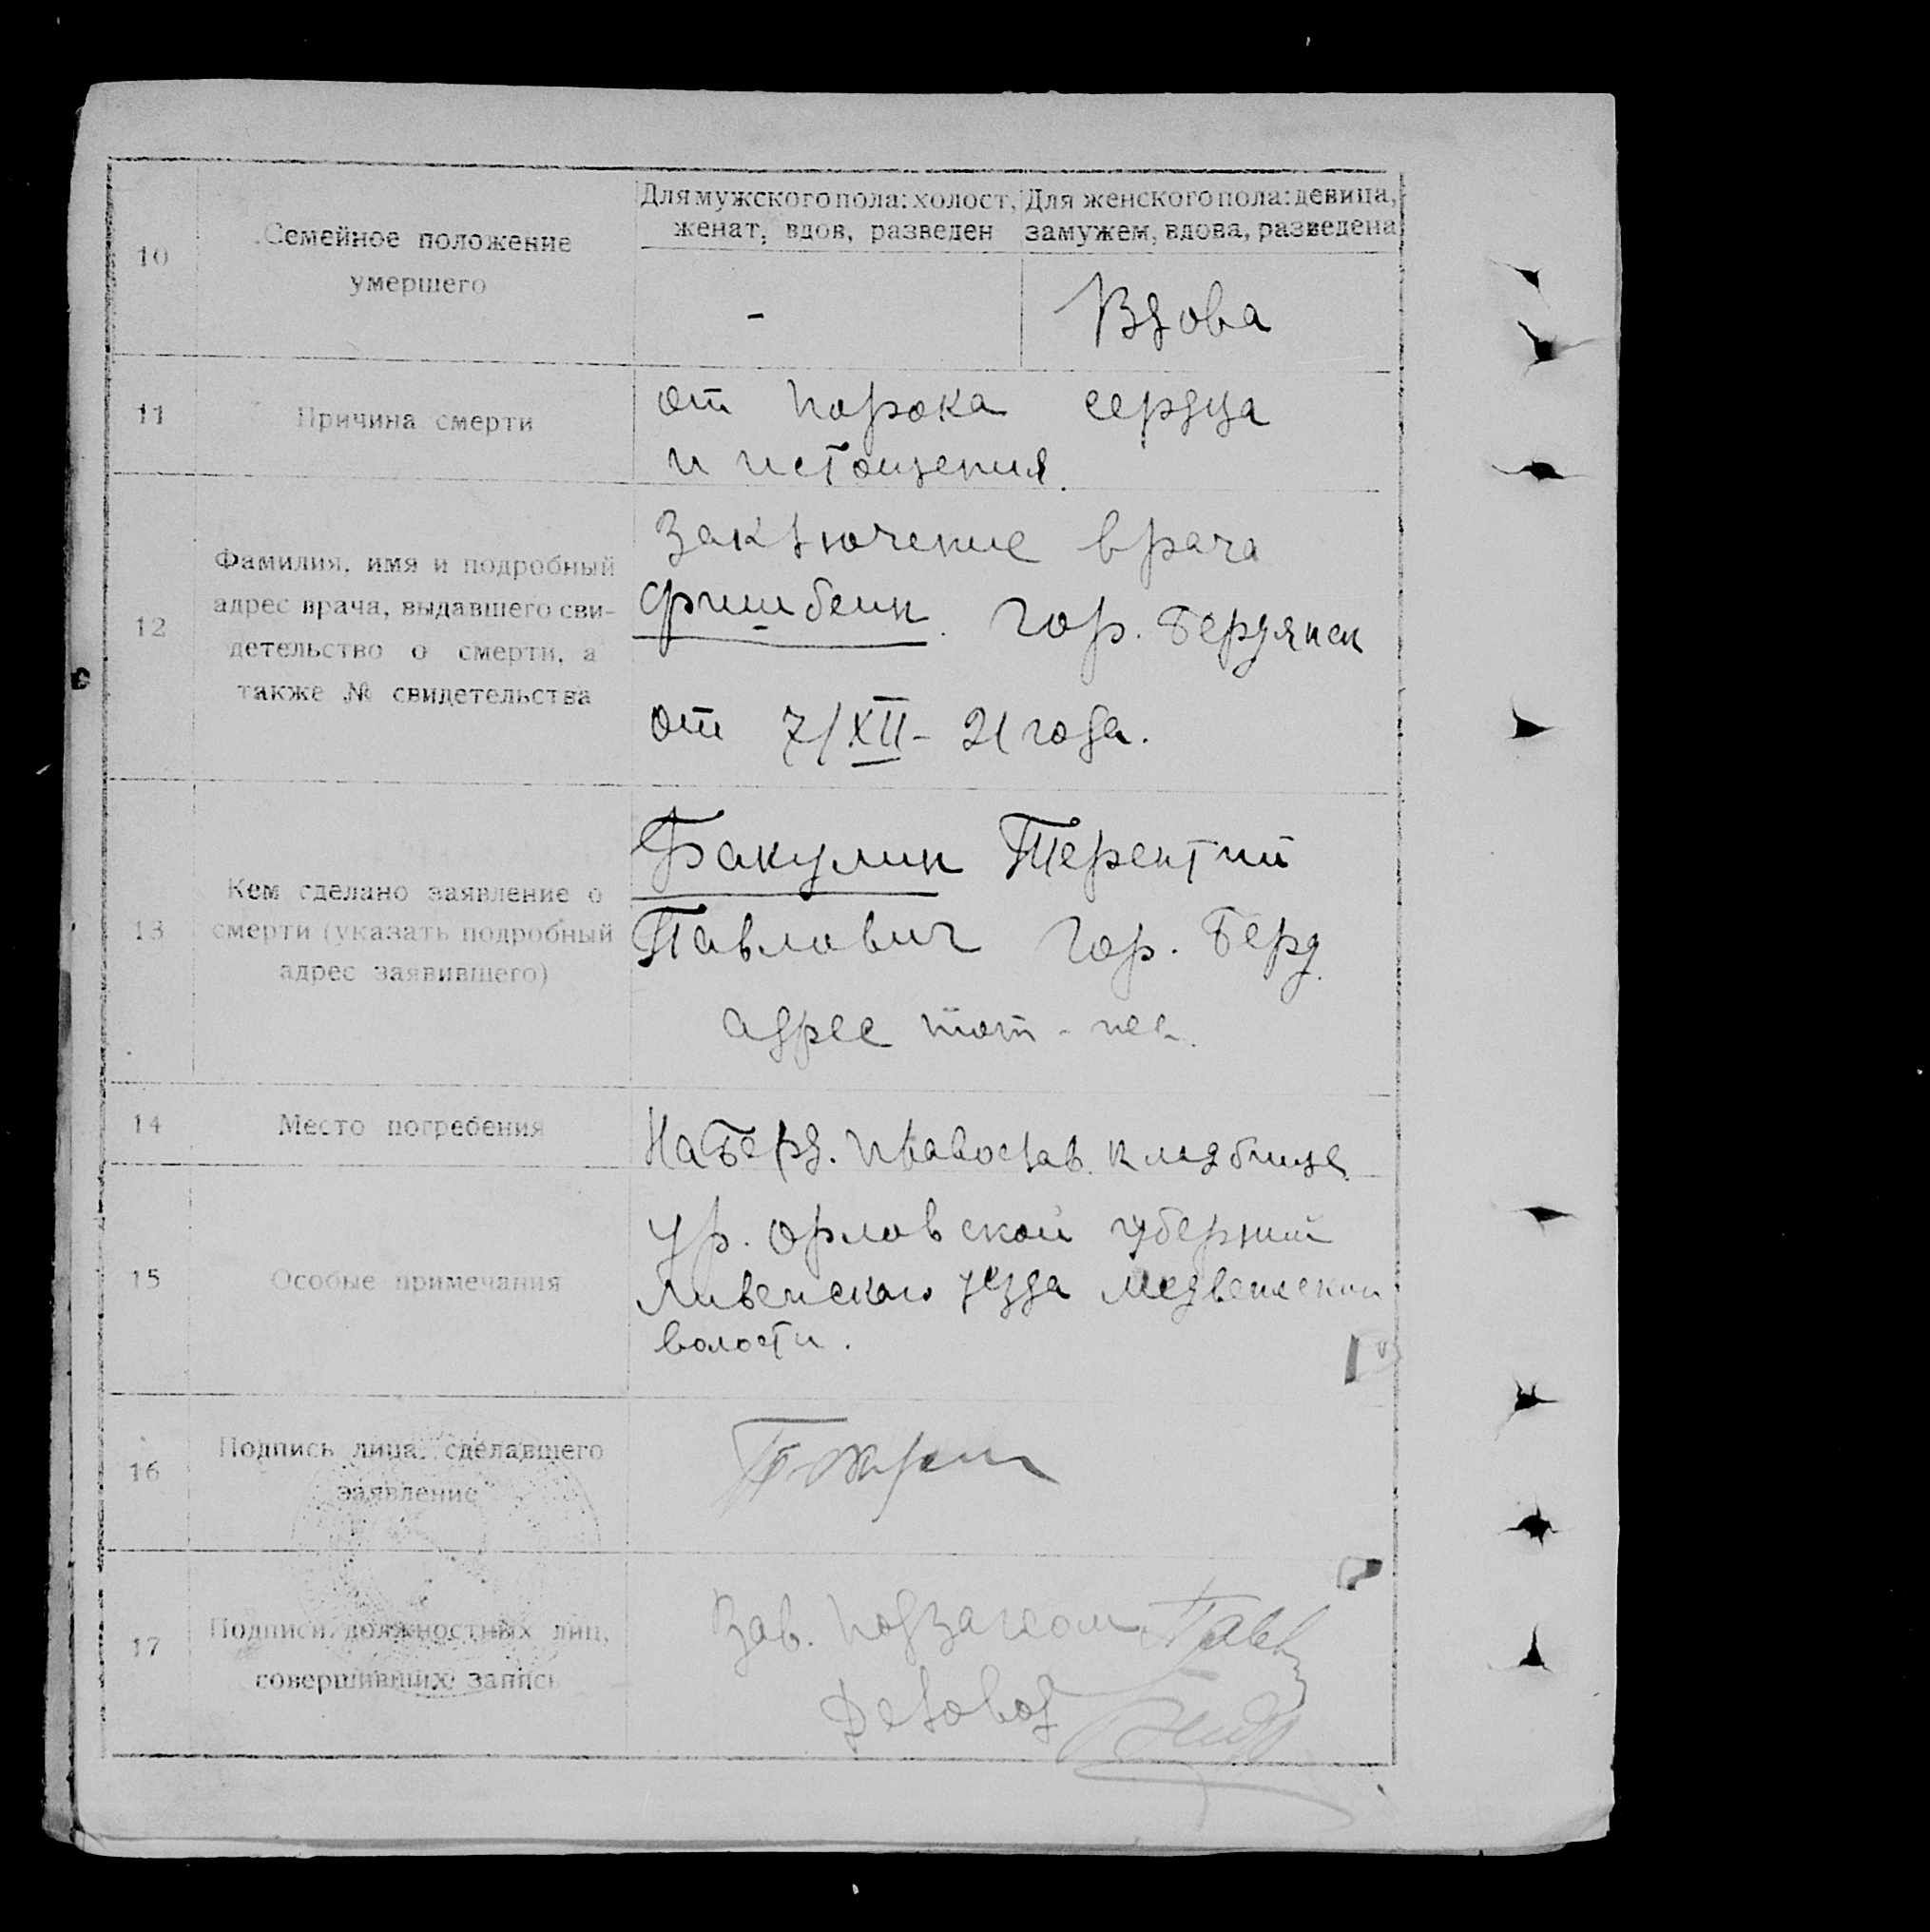 10
Семейное положение
умершего
Для мужского пола: холост,
женат, вдов, разведен
Для женского пола: девица,
замужем, вдова, разведена
-
Вдова
11
Причина смерти
от порока сердца
и истощения.
12
Фамилия, имя и подробный
адрес врача, выдавшего сви-
детельство о смерти, а
также № свидетельства
Заключение врача
Фишбейн. гор. Бердянск
от 7/XII - 21 года.
13
Кем сделано заявление о
смерти (указать подробный
адрес заявившего)
Бакулин Терентий
Павлович гор. Берд.
адрес тот-же.
14
Место погребения
На Берд. православ. кладбище
15
Особые примечания
ур. Орловской губернии
Ливенского уезда
волости.
16
Подпись лица, сделавшего
заявление
17
Подписи должностных лиц,
совершивших запись
Зав. подзагсом
Деловод